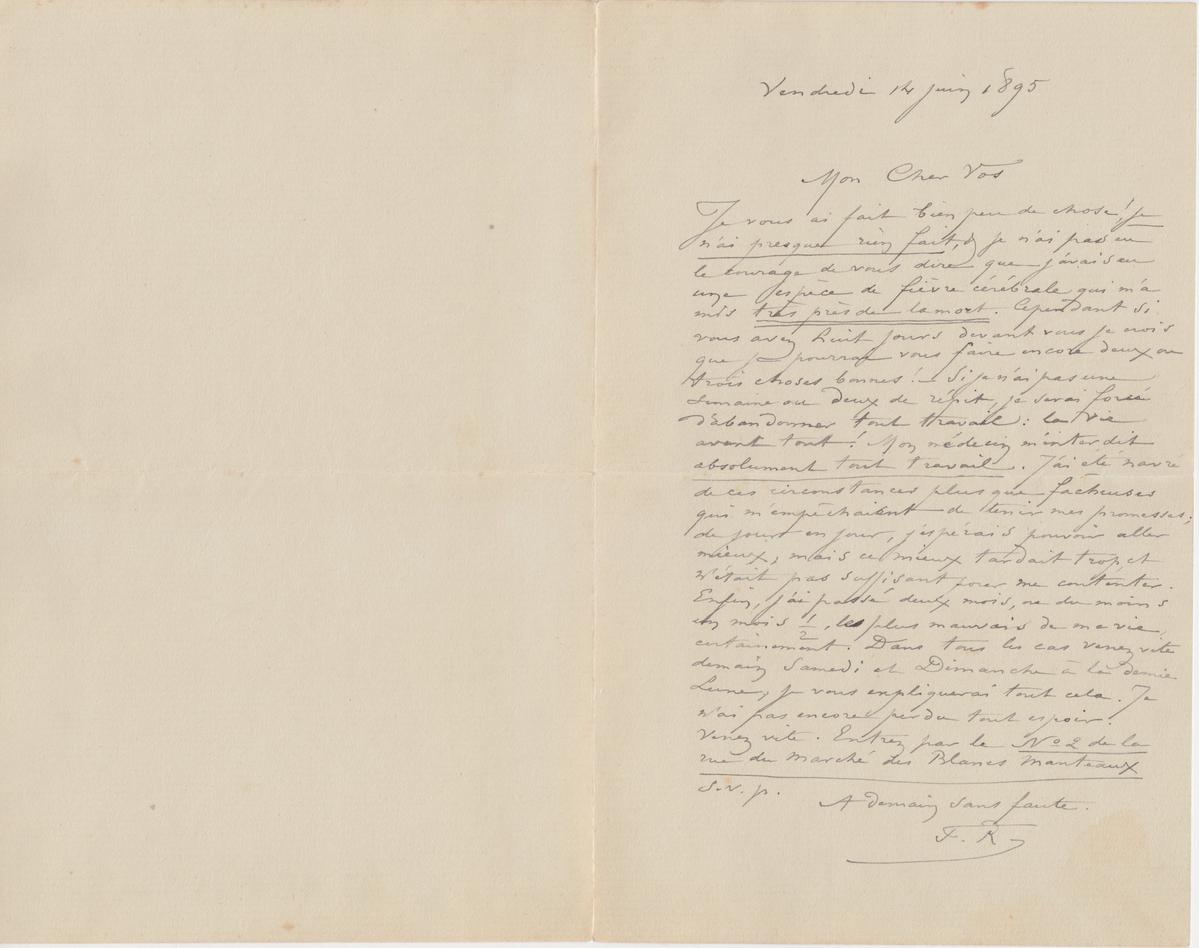 Vendredi 14 juin 1895
Mon Cher Vos
Je vous ai fait bien peu de chose! je
n'ai presque rien fait, & je n'ai pas eu
le courage de vous dire que j'avais eu
une espèce de fièvre cérébrale qui m'a
mis très près de la mort. Cependant si
vous avez huit jours devant vous je crois
que je pourrai vous faire encore deux ou
trois choses bonnes! – Si je n'ai pas une
semaine ou deux de répit, je serai forcé
d'abandonner tout travail: la vie
avant tout! Mon médecin m'interdit
absolument tout travail. J'ai été navré
de ces circonstances plus que fâcheuses
qui m'empêchaient de tenir mes promesses;
de jour en jour, j'espérais pouvoir aller
mieux, mais ce mieux tardait trop, et
n'était pas suffisant pour me contenter.
Enfin, j'ai passé deux mois, ou du moins
un mois 1/2, les plus mauvais de ma vie,
certainement. Dans tous les cas venez vite
demain Samedi et Dimanche à la demie
Lune, je vous expliquerai tout cela. Je
n'ai pas encore perdu tout espoir.
Venez vite. Entrez par le No 2 de la
rue du Marché des Blancs Manteaux
s.v.p.
A demain sans faute.
F. R